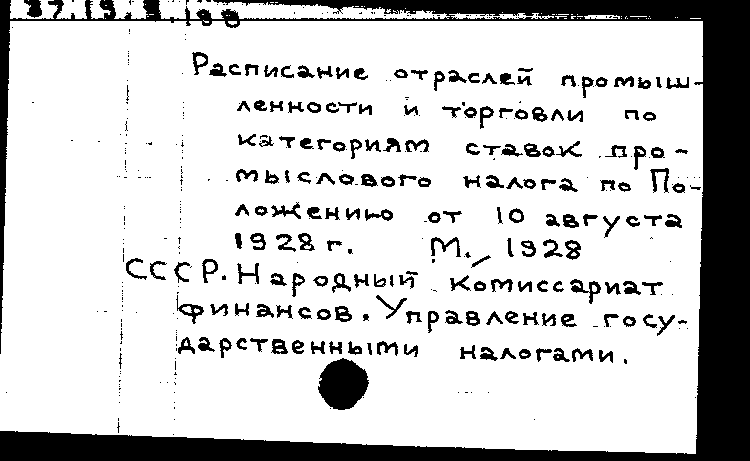 37.19.9.188
Расписание отраслей промыш-
ленности и торговли по
категориям ставок про-
мыслового налога по По-
ложению от 10 августа
1928 г. М., 1928
СССР. Народный комиссариат
финансов. Управление госу-
дарственными налогами.